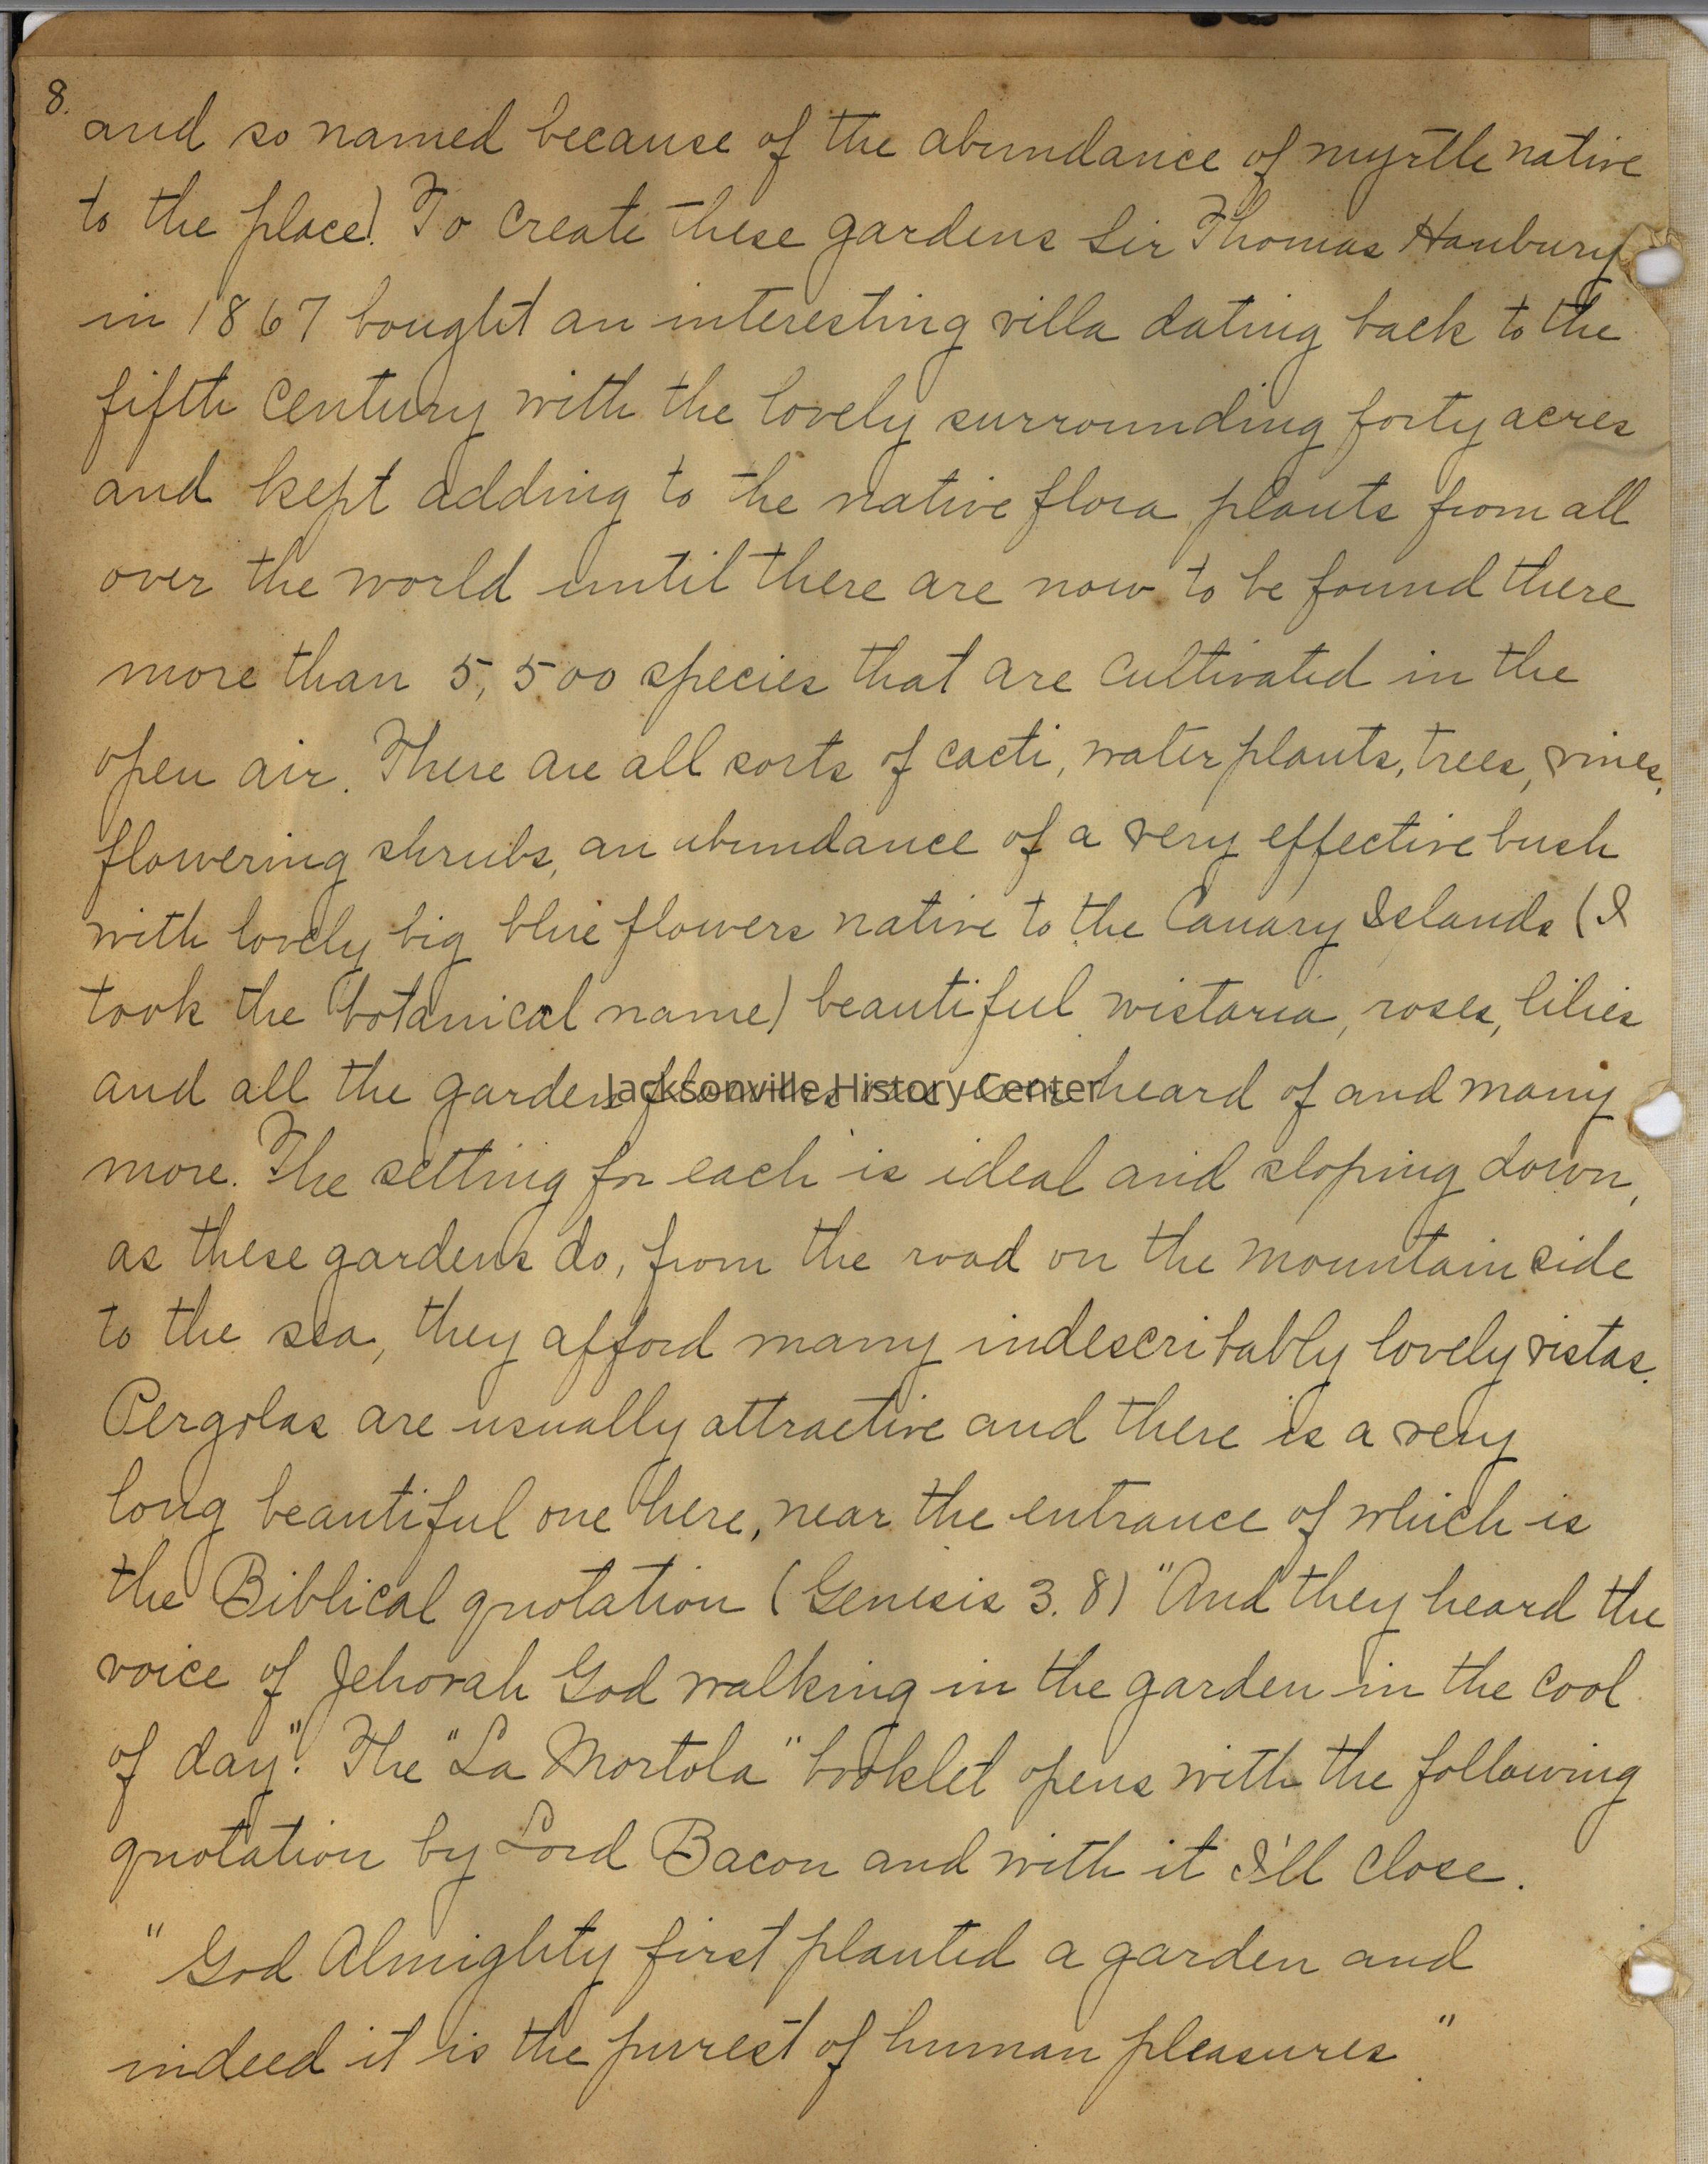 8.
and so named because of the abundance of myrtle native
to the place). To create these gardens Sir Thomas Hanbury
in 1867 bought an interesting villa dating back to the
fifth century with the lovely surrounding forty acres
and kept adding to the native flora plants from all
over the world until there are now to be found there
more than 5,500 species that are cultivated in the
open air. There are all sorts of cacti, water plants, trees, vines,
flowering shrubs, an abundance of a very effective bush
with lovely big blue flowers native to the Canary Islands (I
took the botanical name) beautiful wistaria, roses, lilies
and all the garden flowers heard of and many
Jacksonville History Center
more. The setting for each is ideal and sloping down,
as these gardens do, from the road on the mountain side
to the sea, they afford many indescribably lovely vistas.
Pergolas are usually attractive and there is a very
long beautiful one here, near the entrance of which is
the Biblical quotation (Genesis 3.8) "And they heard the
voice of Jehovah God walking in the garden in the cool
of day". The "La Mortola" booklet opens with the following
quotation by Lord Bacon and with it I'll close.
"God Almighty first planted a garden and
indeed it is the purest of human pleasures."